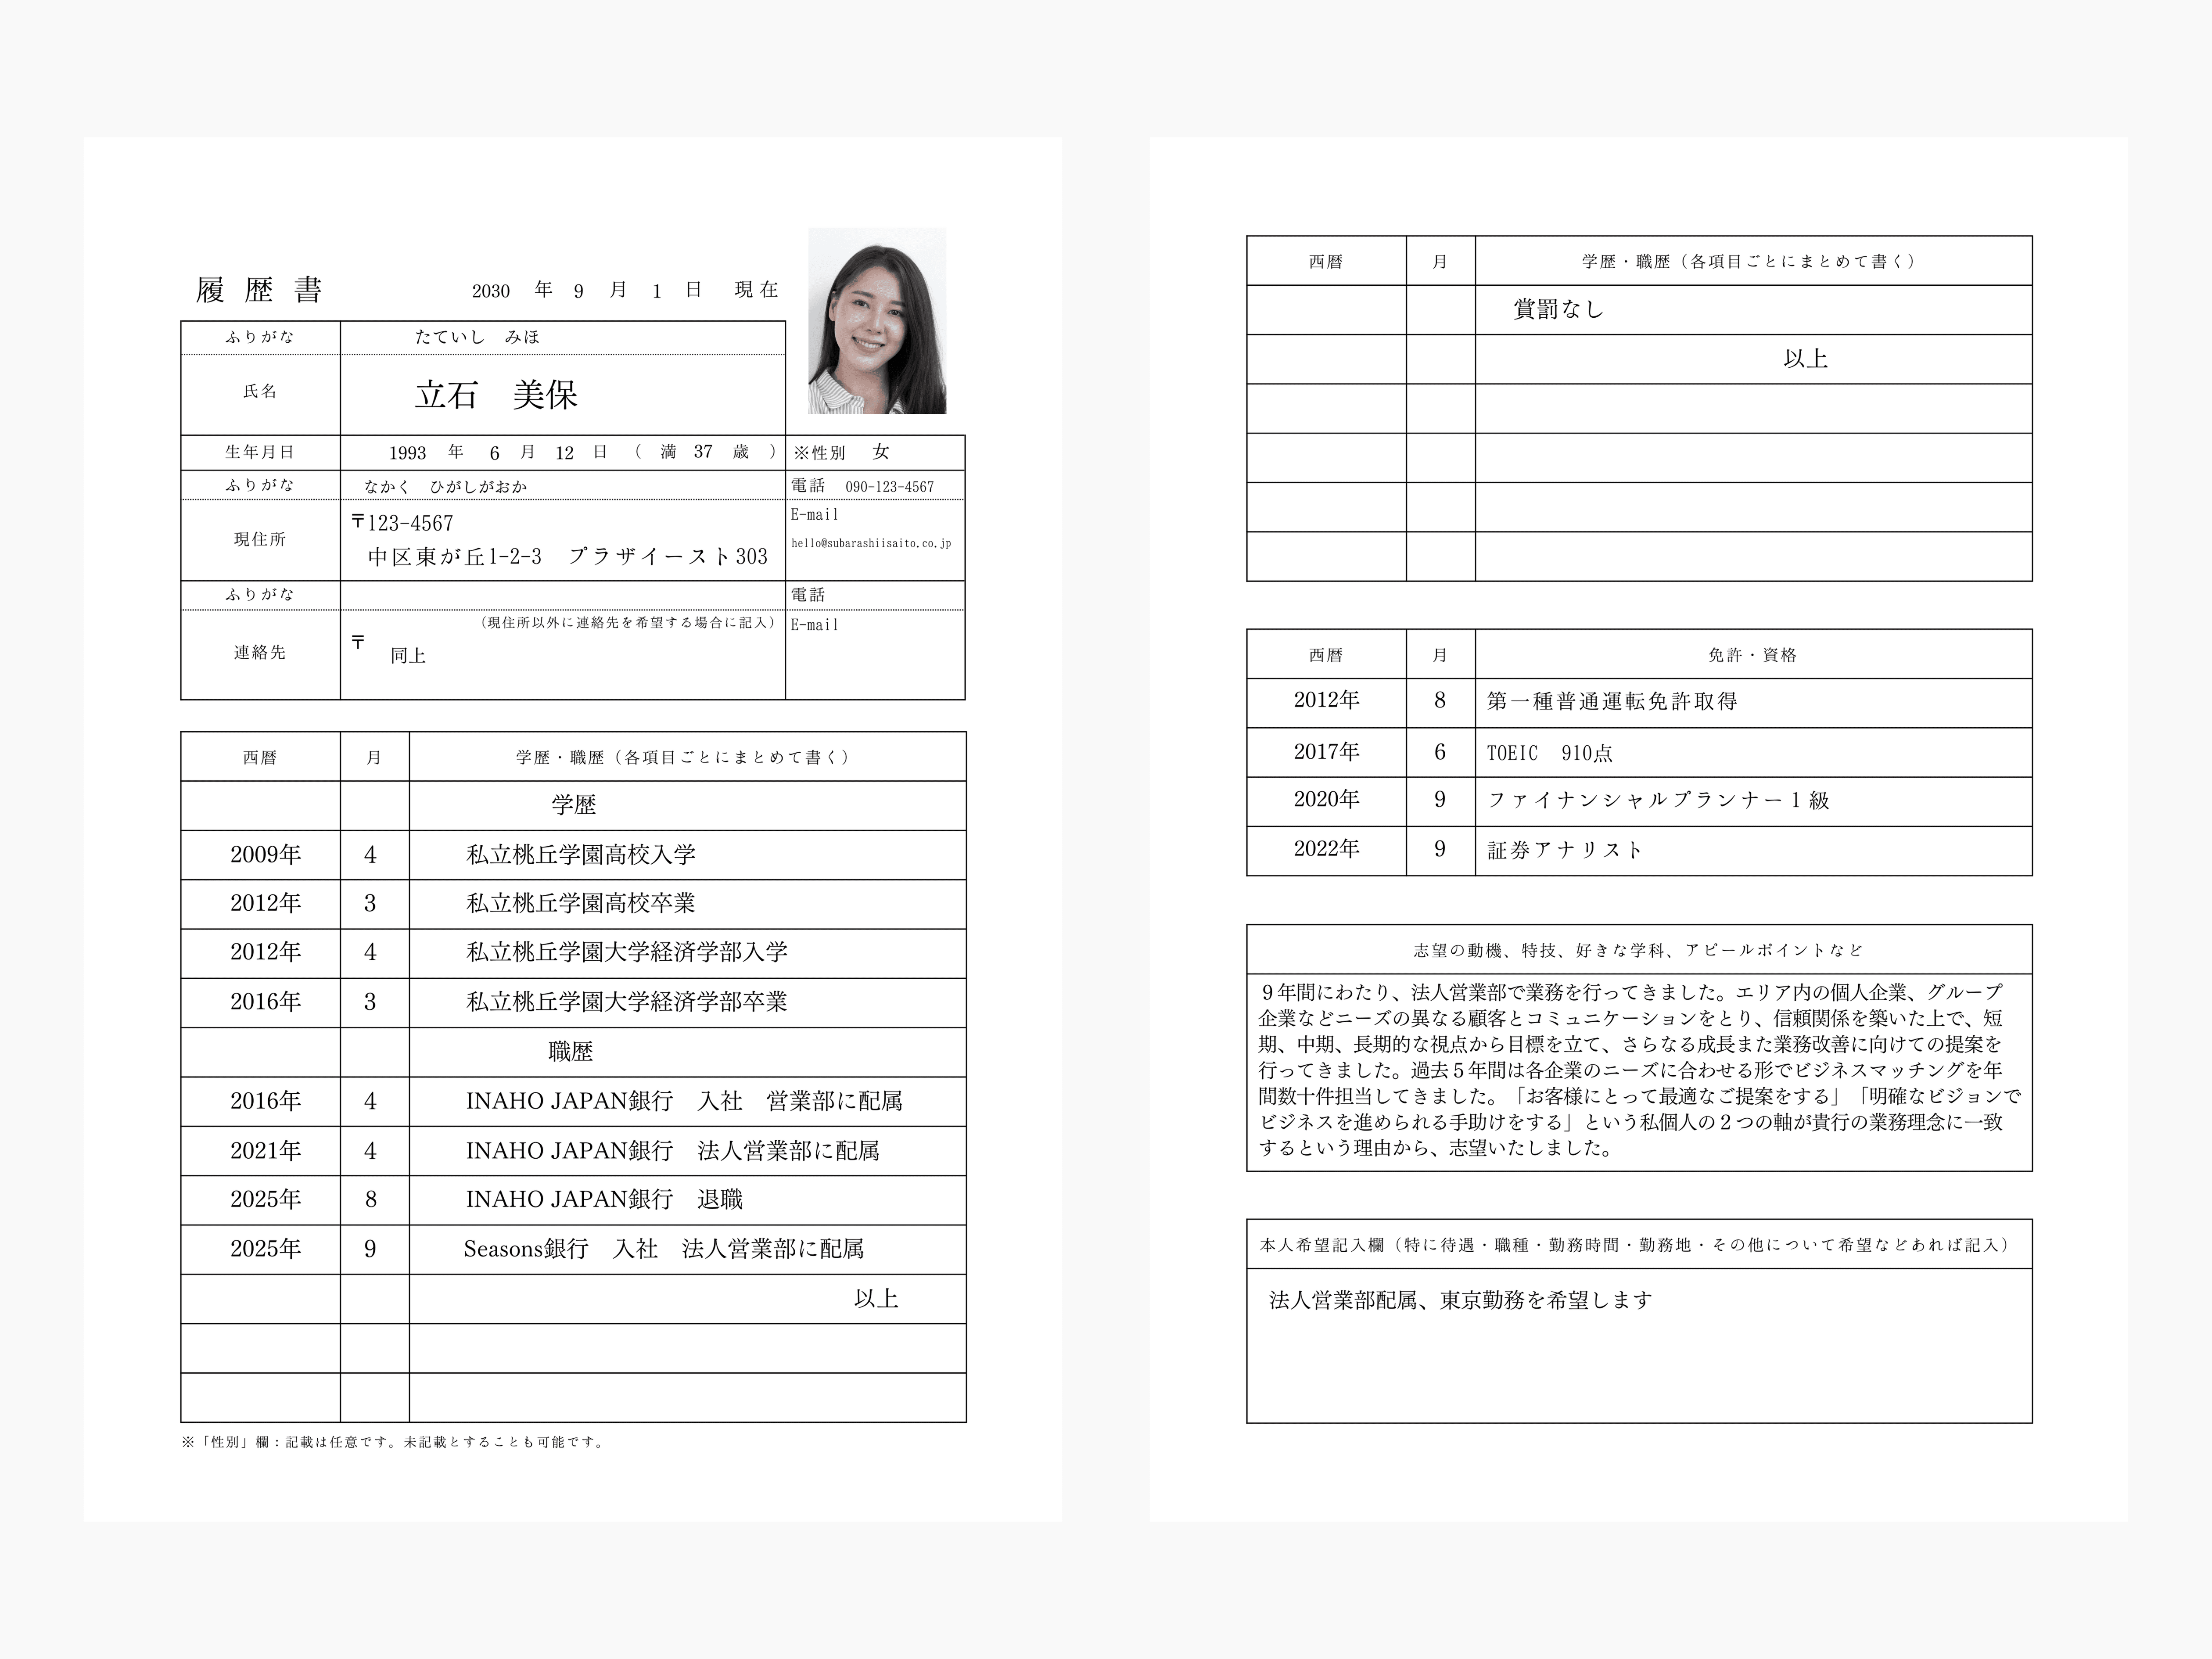 履歴書
2030 年 9 月 1 日 現在
ふりがな たていし みほ
氏名 立石 美保
生年月日 1993 年 6 月 12 日 ( 満 37 歳 ) ※性別 女
ふりがな なかく ひがしがおか 電話 090-123-4567
現住所 〒123-4567
中区東が丘1-2-3 プラザイースト303
E-mail
hello@subarashiisaito.co.jp
ふりがな 電話
(現住所以外に連絡先を希望する場合に記入) E-mail
連絡先 〒 同上
西暦 月 学歴・職歴(各項目ごとにまとめて書く)
学歴
2009年 4 私立桃丘学園高校入学
2012年 3 私立桃丘学園高校卒業
2012年 4 私立桃丘学園大学経済学部入学
2016年 3 私立桃丘学園大学経済学部卒業
職歴
2016年 4 INAHO JAPAN銀行 入社 営業部に配属
2021年 4 INAHO JAPAN銀行 法人営業部に配属
2025年 8 INAHO JAPAN銀行 退職
2025年 9 Seasons銀行 入社 法人営業部に配属
以上
※「性別」欄：記載は任意です。未記載とすることも可能です。
西暦 月 学歴・職歴(各項目ごとにまとめて書く)
賞罰なし
以上
西暦 月 免許・資格
2012年 8 第一種普通運転免許取得
2017年 6 TOEIC 910点
2020年 9 ファイナンシャルプランナー1級
2022年 9 証券アナリスト
志望の動機、特技、好きな学科、アピールポイントなど
９年間にわたり、法人営業部で業務を行ってきました。エリア内の個人企業、グループ
企業などニーズの異なる顧客とコミュニケーションをとり、信頼関係を築いた上で、短
期、中期、長期的な視点から目標を立て、さらなる成長また業務改善に向けての提案を
行ってきました。過去５年間は各企業のニーズに合わせる形でビジネスマッチングを年
間数十件担当してきました。「お客様にとって最適なご提案をする」「明確なビジョンで
ビジネスを進められる手助けをする」という私個人の２つの軸が貴行の業務理念に一致
するという理由から、志望いたしました。
本人希望記入欄(特に待遇・職種・勤務時間・勤務地・その他について希望などあれば記入)
法人営業部配属、東京勤務を希望します